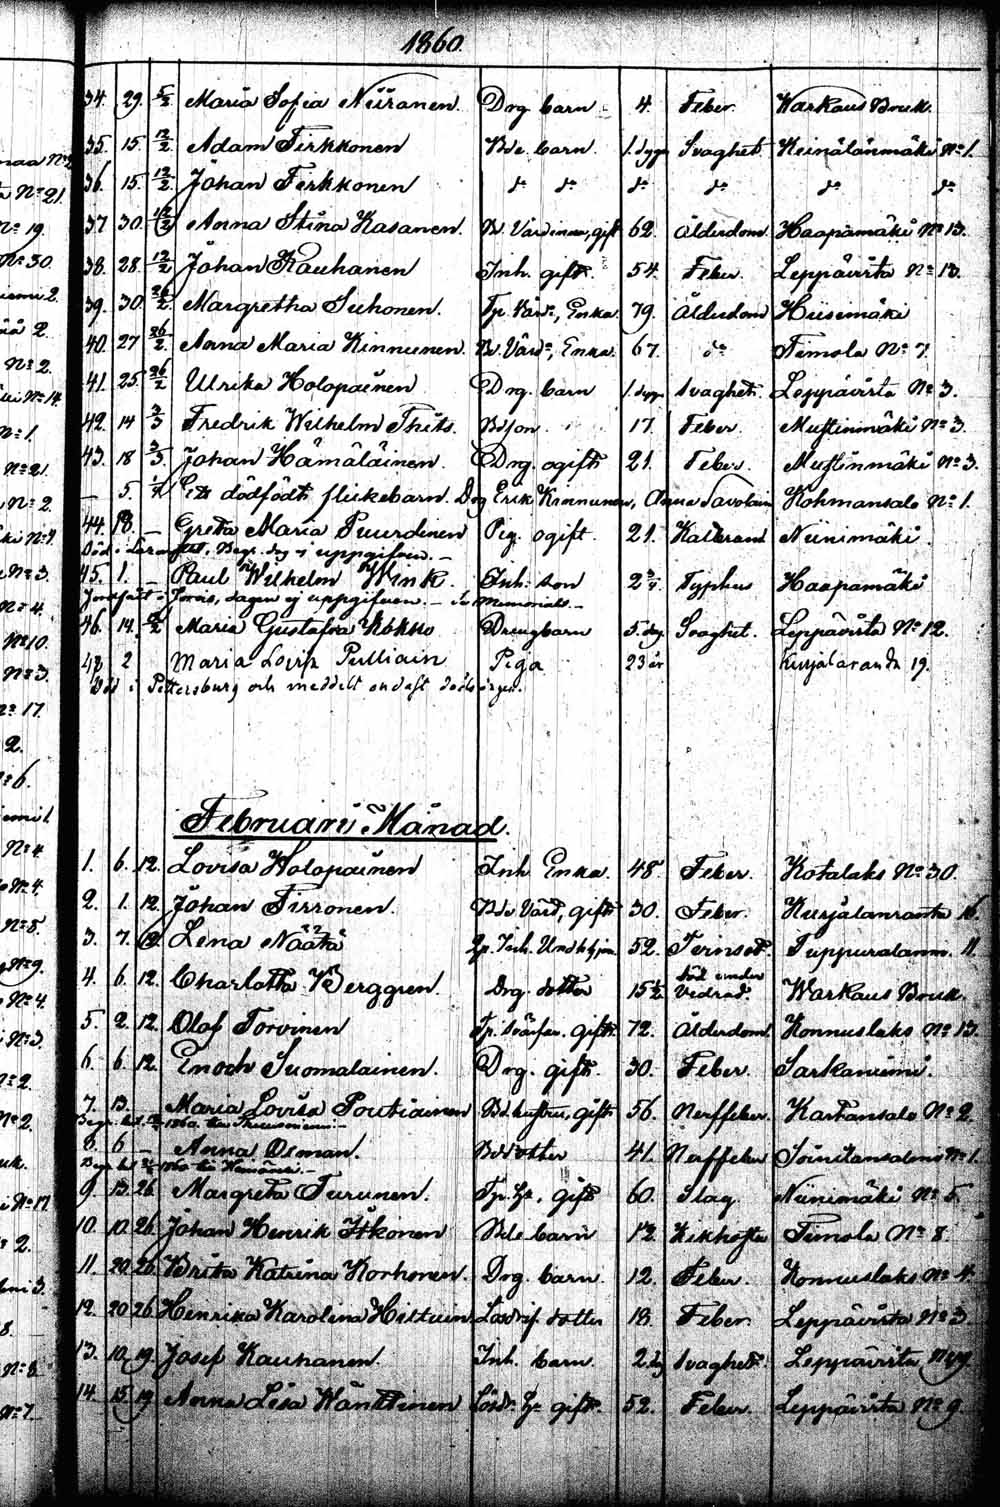 1860.
34. 29. 5/2 Maria Sofia Niiranen. Drg barn 4. Feber. Warkaus Bruk.
35. 15. 12/2 Adam Tirkkonen Bde barn. 1. dygn Svaghet Keinälänmäki No 1.
36. 15. 12/2 Johan Tirkkonen do do do do do do
37. 30. 12/2 Anna Stina Kasanen. Bd. Värdinna, gift 62. Ålderdom Haapamäki No 13.
38. 28. 12/2 Johan Kauhanen Inh. gift. 54. Feber. Leppävirta No 13.
39. 30. 26/2 Margretha Suhonen. Tp. Enka 79. Ålderdom Hiisimäki
40. 27 26/2 Anna Maria Kinnunen. Bd. Värd., Enka. 67. do Timola No 7.
41. 25. 26/2 Ulrika Holopainen Drg. barn 1. dygn Svaghet. Leppävirta No 3.
42. 14 3/3 Fredrik Wilhelm Bdson. 17. Feber. Mustinmäki No 3.
43. 18 3/3 Johan Hämäläinen. Drg. ogift 21. Feber. Mustinmäki No 3.
— 5. Ett dödfödt flickebarn. Drg Erik Kinnunen, Anna Savolain Kohmansalo No 1.
44. 18. — Greta Maria Puurdinen Pig. ogift. 21. Kallbrand Niinimäki.
Död i Begr. dag ej uppgifven. —
45. 1. — Paul Wilhelm Wink. Inh. son 2 3/4 Typhus Haapamäki
Jordfäst i dagen ej uppgifven. — Memorial. —
46. 14. Maria Gustafva Kokko Drengbarn 5. dag. Svaghet. Leppävirta No 12.
48 2 Maria Lovisa Pulliain Piga 23 år Kurjalaranda 19.
Död i Pettersburg och meddelt endast
Februari Månad.
1. 6. 12. Lovisa Holopainen Inh. Enka. 48. Feber. Kotalaks No 30.
2. 1. 12. Johan Tirronen. Bde Värd, gift 30. Feber. Kurjalanranta 16.
3. 7. 12. Lena Näätä Inh. 52. Tuppuralanm. 11.
4. 6 12. Charlotta Berggren. Drg. dotter 15 1/2 död under Warkaus Bruk.
5. 2. 12. Olof Torvinen Tp. gift. 72. Ålderdom. Konnuslaks No 13.
6. 6. 12. Enoch Suomalainen. Drg. gift. 30. Feber. Sarkaniemi.
7. 13. Maria Lovisa Poutiainen Bd. hustru, gift 56. Nerffeber. Kartansalo No 2.
8. 6 — Anna Osman. Bddotter 41. Nerffeber Soinilansalmi No 1.
9. 13. 26. Margreta Turunen. Tp. Hu. gift 60. Slag. Niinimäki No 5.
10. 10. 26. Johan Henrik Itkonen Bde barn 1/2. Kikhosta Timola No 8.
11. 20. 26. Brita Katrina Korhonen. Drg. barn. 12. Feber. Konnuslaks No 4.
12. 20 26 Henrika Karolina Hiltuin Lösdrif. dotter 18. Feber. Leppävirta No 3.
13. 10. 19. Josef Kauhanen. Inh. barn. 2. dg Svaghet. Leppävirta No 9.
14. 15. 19 Anna Lisa Wänttinen Lösdr. Hu gift. 52. Feber. Leppävirta No 9.